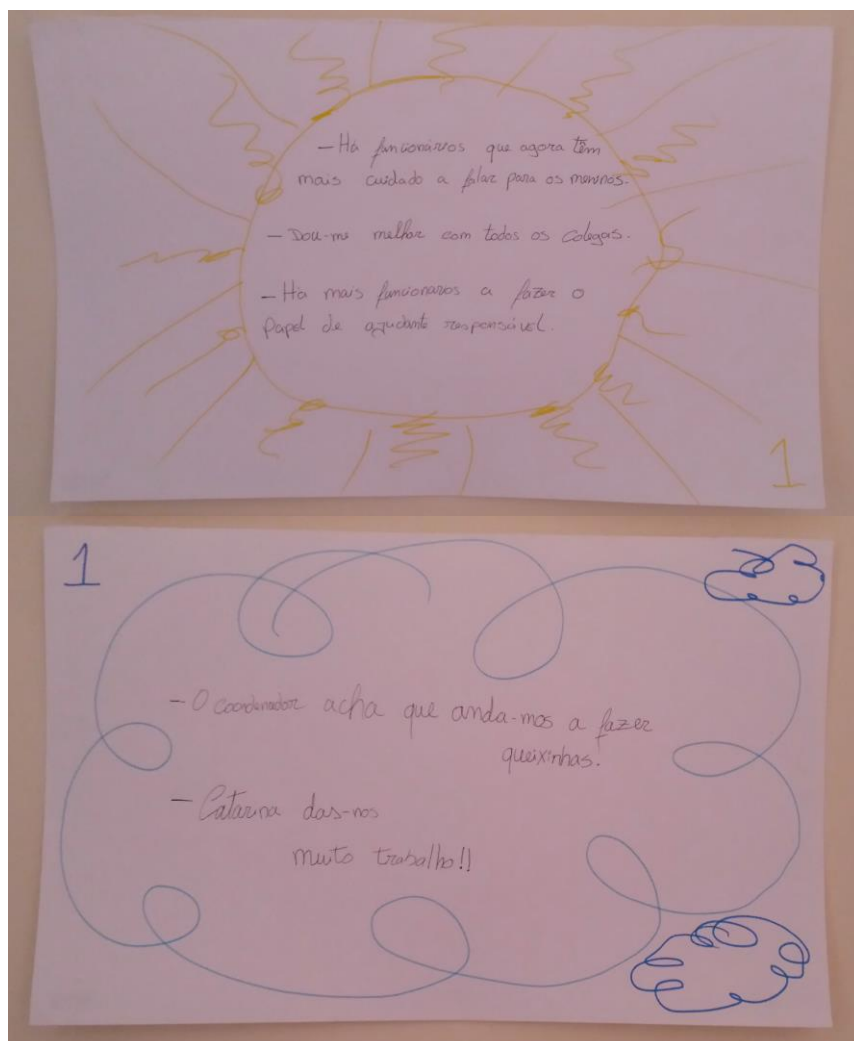 - Há funcionários que agora têm
mais cuidado a falar para os meninos.
- Dou-me melhor com todos os colegas.
- Há mais funcionarios a fazer o
papel de ajudante responsável.
1
1
- O coordenador acha que anda-mos a fazer
queixinhas.
- Catarina das-nos
muito trabalho!!